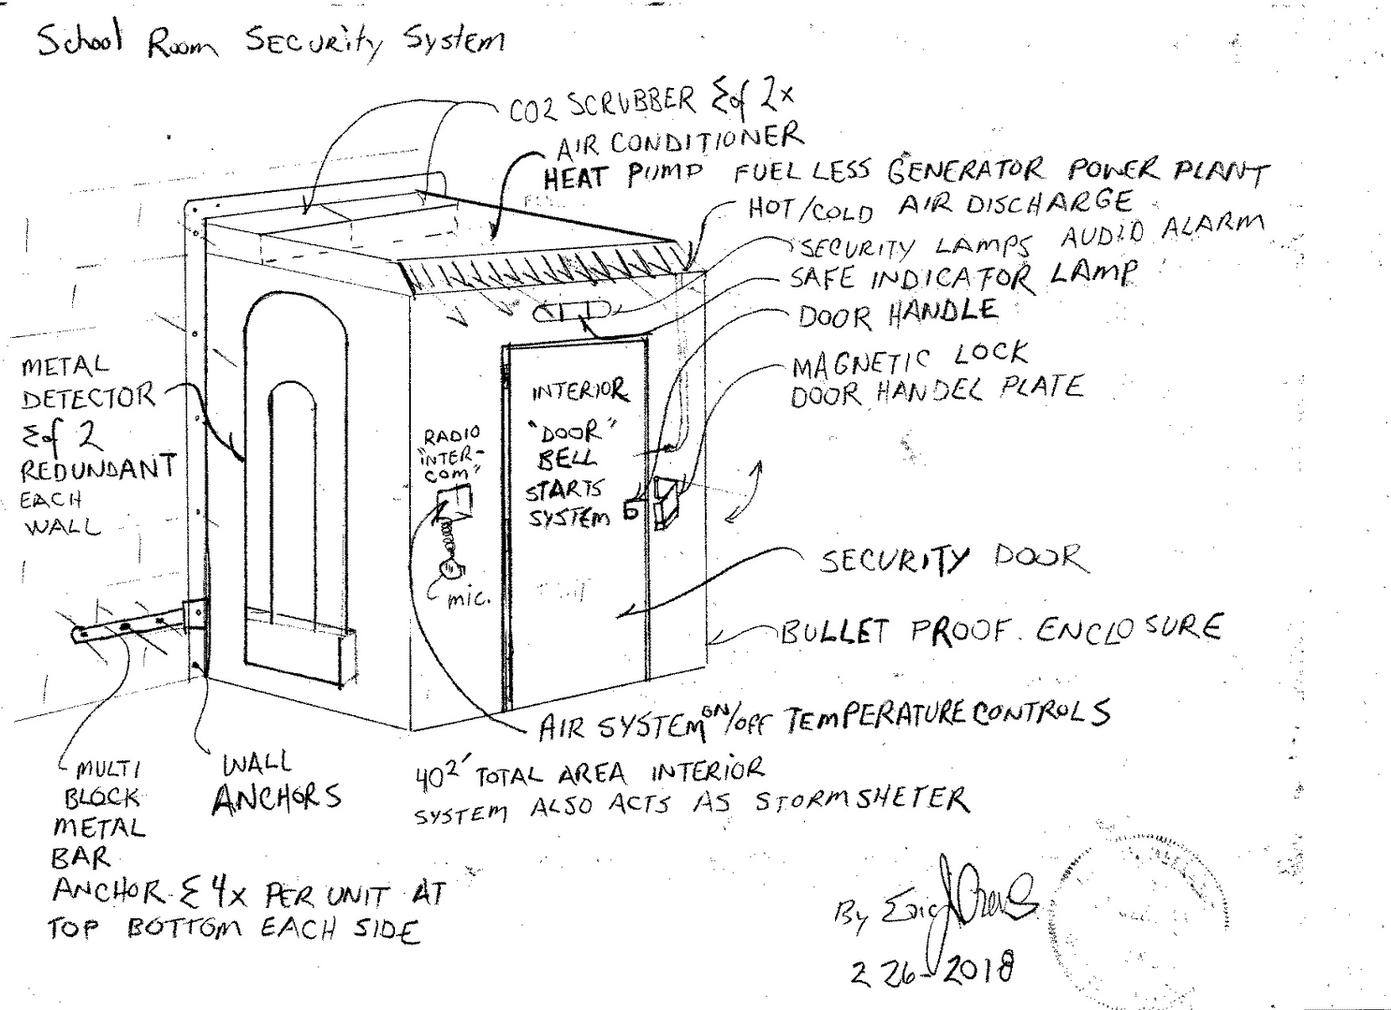 School Room Security System
CO2 SCRUBBER Σof 2x
AIR CONDITIONER
HEAT PUMP FUEL LESS GENERATOR POWER PLANT
HOT/COLD AIR DISCHARGE
SECURITY LAMPS AUDIO ALARM
SAFE INDICATOR LAMP
DOOR HANDLE
MAGNETIC LOCK
DOOR HANDEL PLATE
METAL
DETECTOR
Σof 2
REDUNDANT
EACH
WALL
RADIO
"INTER-
COM"
mic.
INTERIOR
"DOOR"
BELL
STARTS
SYSTEM
SECURITY DOOR
BULLET PROOF ENCLOSURE
AIR SYSTEM ON/OFF TEMPERATURE CONTROLS
40²' TOTAL AREA INTERIOR
SYSTEM ALSO ACTS AS STORMSHETER
WALL
ANCHORS
MULTI
BLOCK
METAL
BAR
ANCHOR Σ 4x PER UNIT AT
TOP BOTTOM EACH SIDE
By Eric
2 26-2018